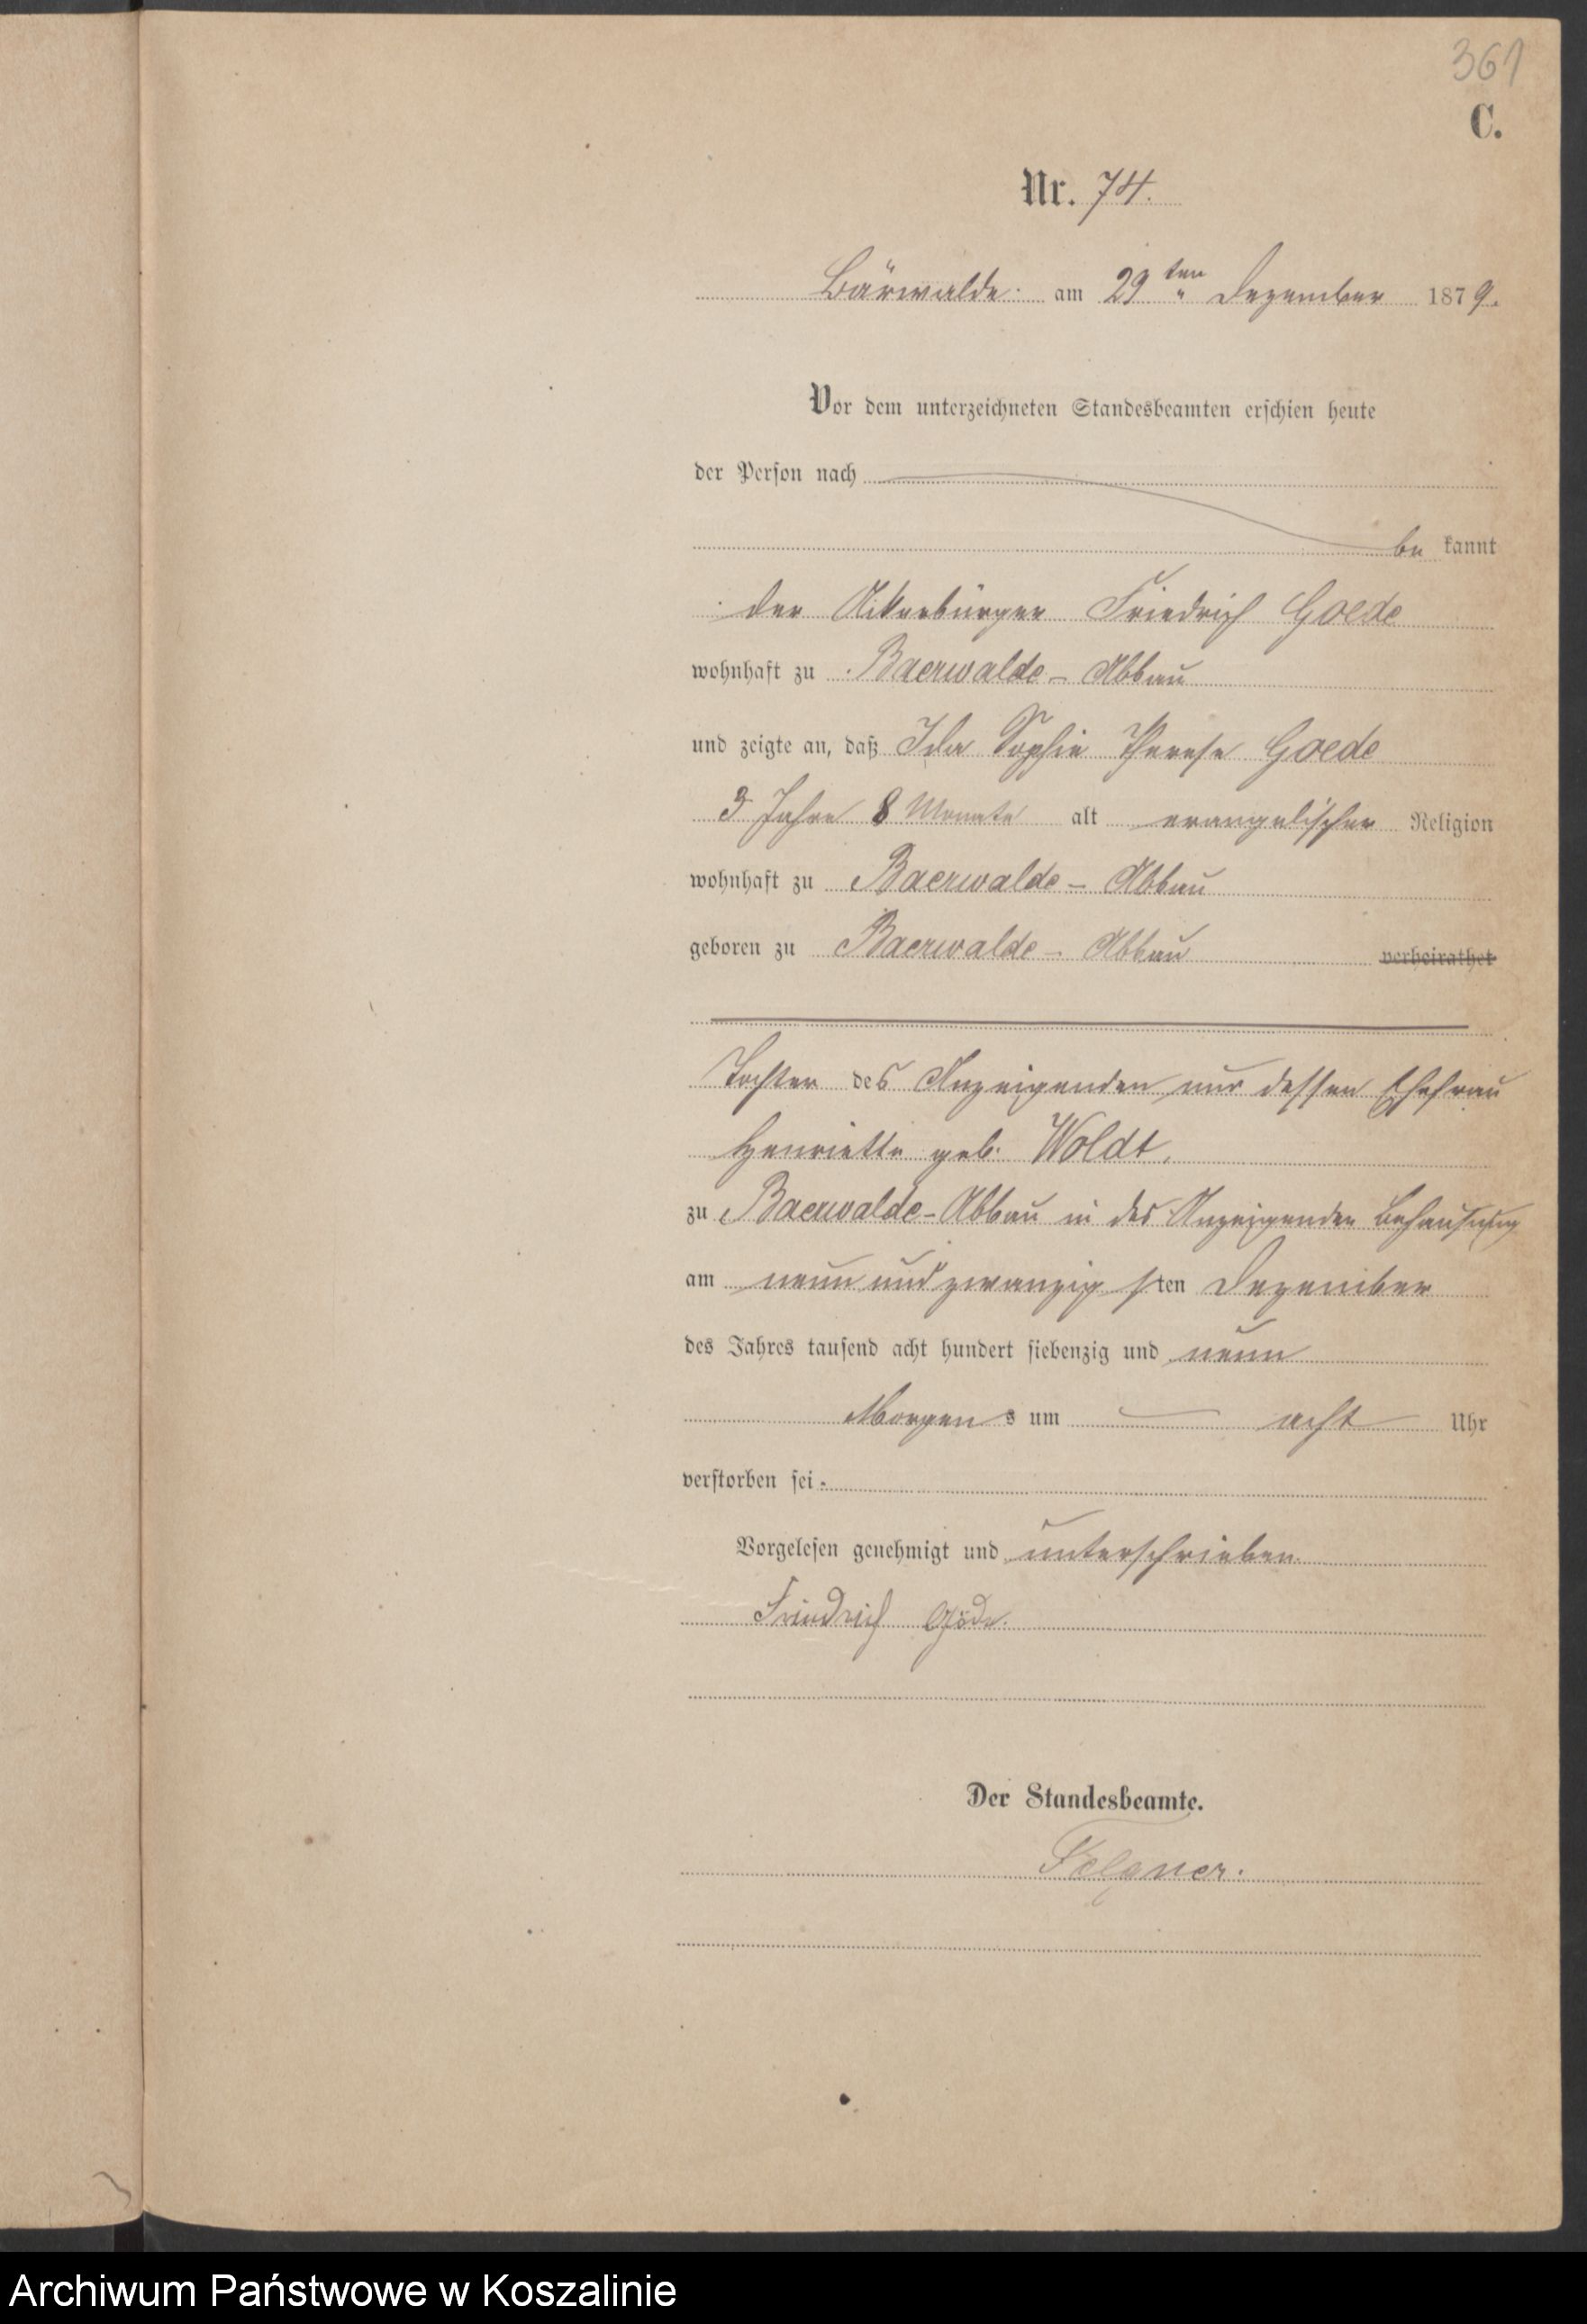 361
C.
Nr. 74.
Bärwalde. am 29ten Dezember 1879.
Vor dem unterzeichneten Standesbeamten erschien heute
der Person nach
be kannt
der Ackerbürger Friedrich Goede
wohnhaft zu Baerwalde - Abbau
und zeigte an, daß Ida Sophie Therese Goede
3 Jahre 8 Monate alt evangelischer Religion
wohnhaft zu Baerwalde - Abbau
geboren zu Baerwalde - Abbau verheirathet
Tochter des Anzeigenden und dessen Ehefrau
Henriette geb. Woldt.
zu Baerwalde - Abbau in des Anzeigenden Behausung
am neun und zwanzigsten Dezember
des Jahres tausend acht hundert siebenzig und neun
Morgens um acht Uhr
verstorben sei.
Vorgelesen genehmigt und unterschrieben.
Friedrich Göde.
Der Standesbeamte.
Felgner.
Archiwum Państwowe w Koszalinie